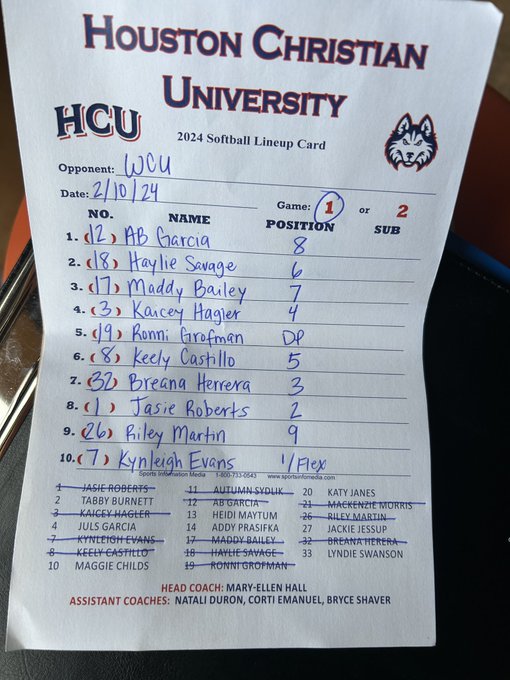 HOUSTON CHRISTIAN
UNIVERSITY
HCU
2024 Softball Lineup Card
Opponent: WCU
Date: 2/10/24
Game: 1 or 2
NO. NAME POSITION SUB
1. (12) AB Garcia 8
2. (18) Haylie Savage 6
3. (17) Maddy Bailey 7
4. (3) Kaicey Hagler 4
5. (19) Ronni Grofman DP
6. (8) Keely Castillo 5
7. (32) Breana Herrera 3
8. (1) Jasie Roberts 2
9. (26) Riley Martin 9
10. (7) Kynleigh Evans 1/Flex
Sports Information Media 1-800-733-0543 www.sportsinfomedia.com
1 JASIE ROBERTS 11 AUTUMN SYDLIK 20 KATY JANES
2 TABBY BURNETT 12 AB GARCIA 21 MACKENZIE MORRIS
3 KAICEY HAGLER 13 HEIDI MAYTUM 26 RILEY MARTIN
4 JULS GARCIA 14 ADDY PRASIFKA 27 JACKIE JESSUP
7 KYNLEIGH EVANS 17 MADDY BAILEY 32 BREANA HERERA
8 KEELY CASTILLO 18 HAYLIE SAVAGE 33 LYNDIE SWANSON
10 MAGGIE CHILDS 19 RONNI GROFMAN
HEAD COACH: MARY-ELLEN HALL
ASSISTANT COACHES: NATALI DURON, CORTI EMANUEL, BRYCE SHAVER